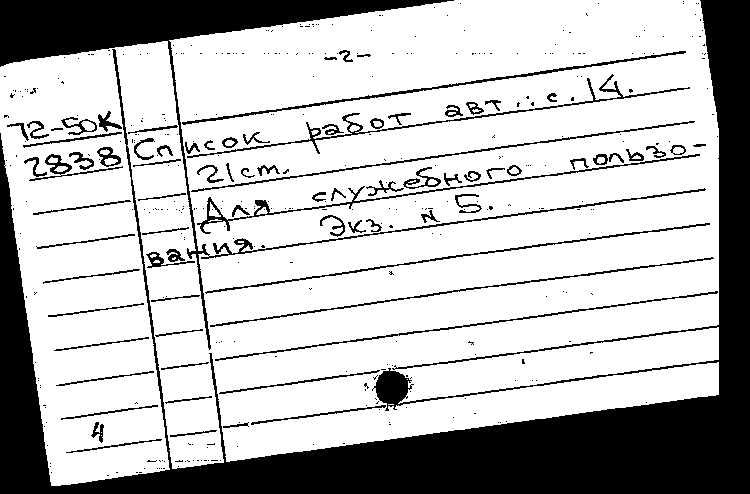 -2-
72-50К
2838 Список работ авт.: с. 14.
21cm.
Для служебного пользо-
вания. Экз. N 5.
4